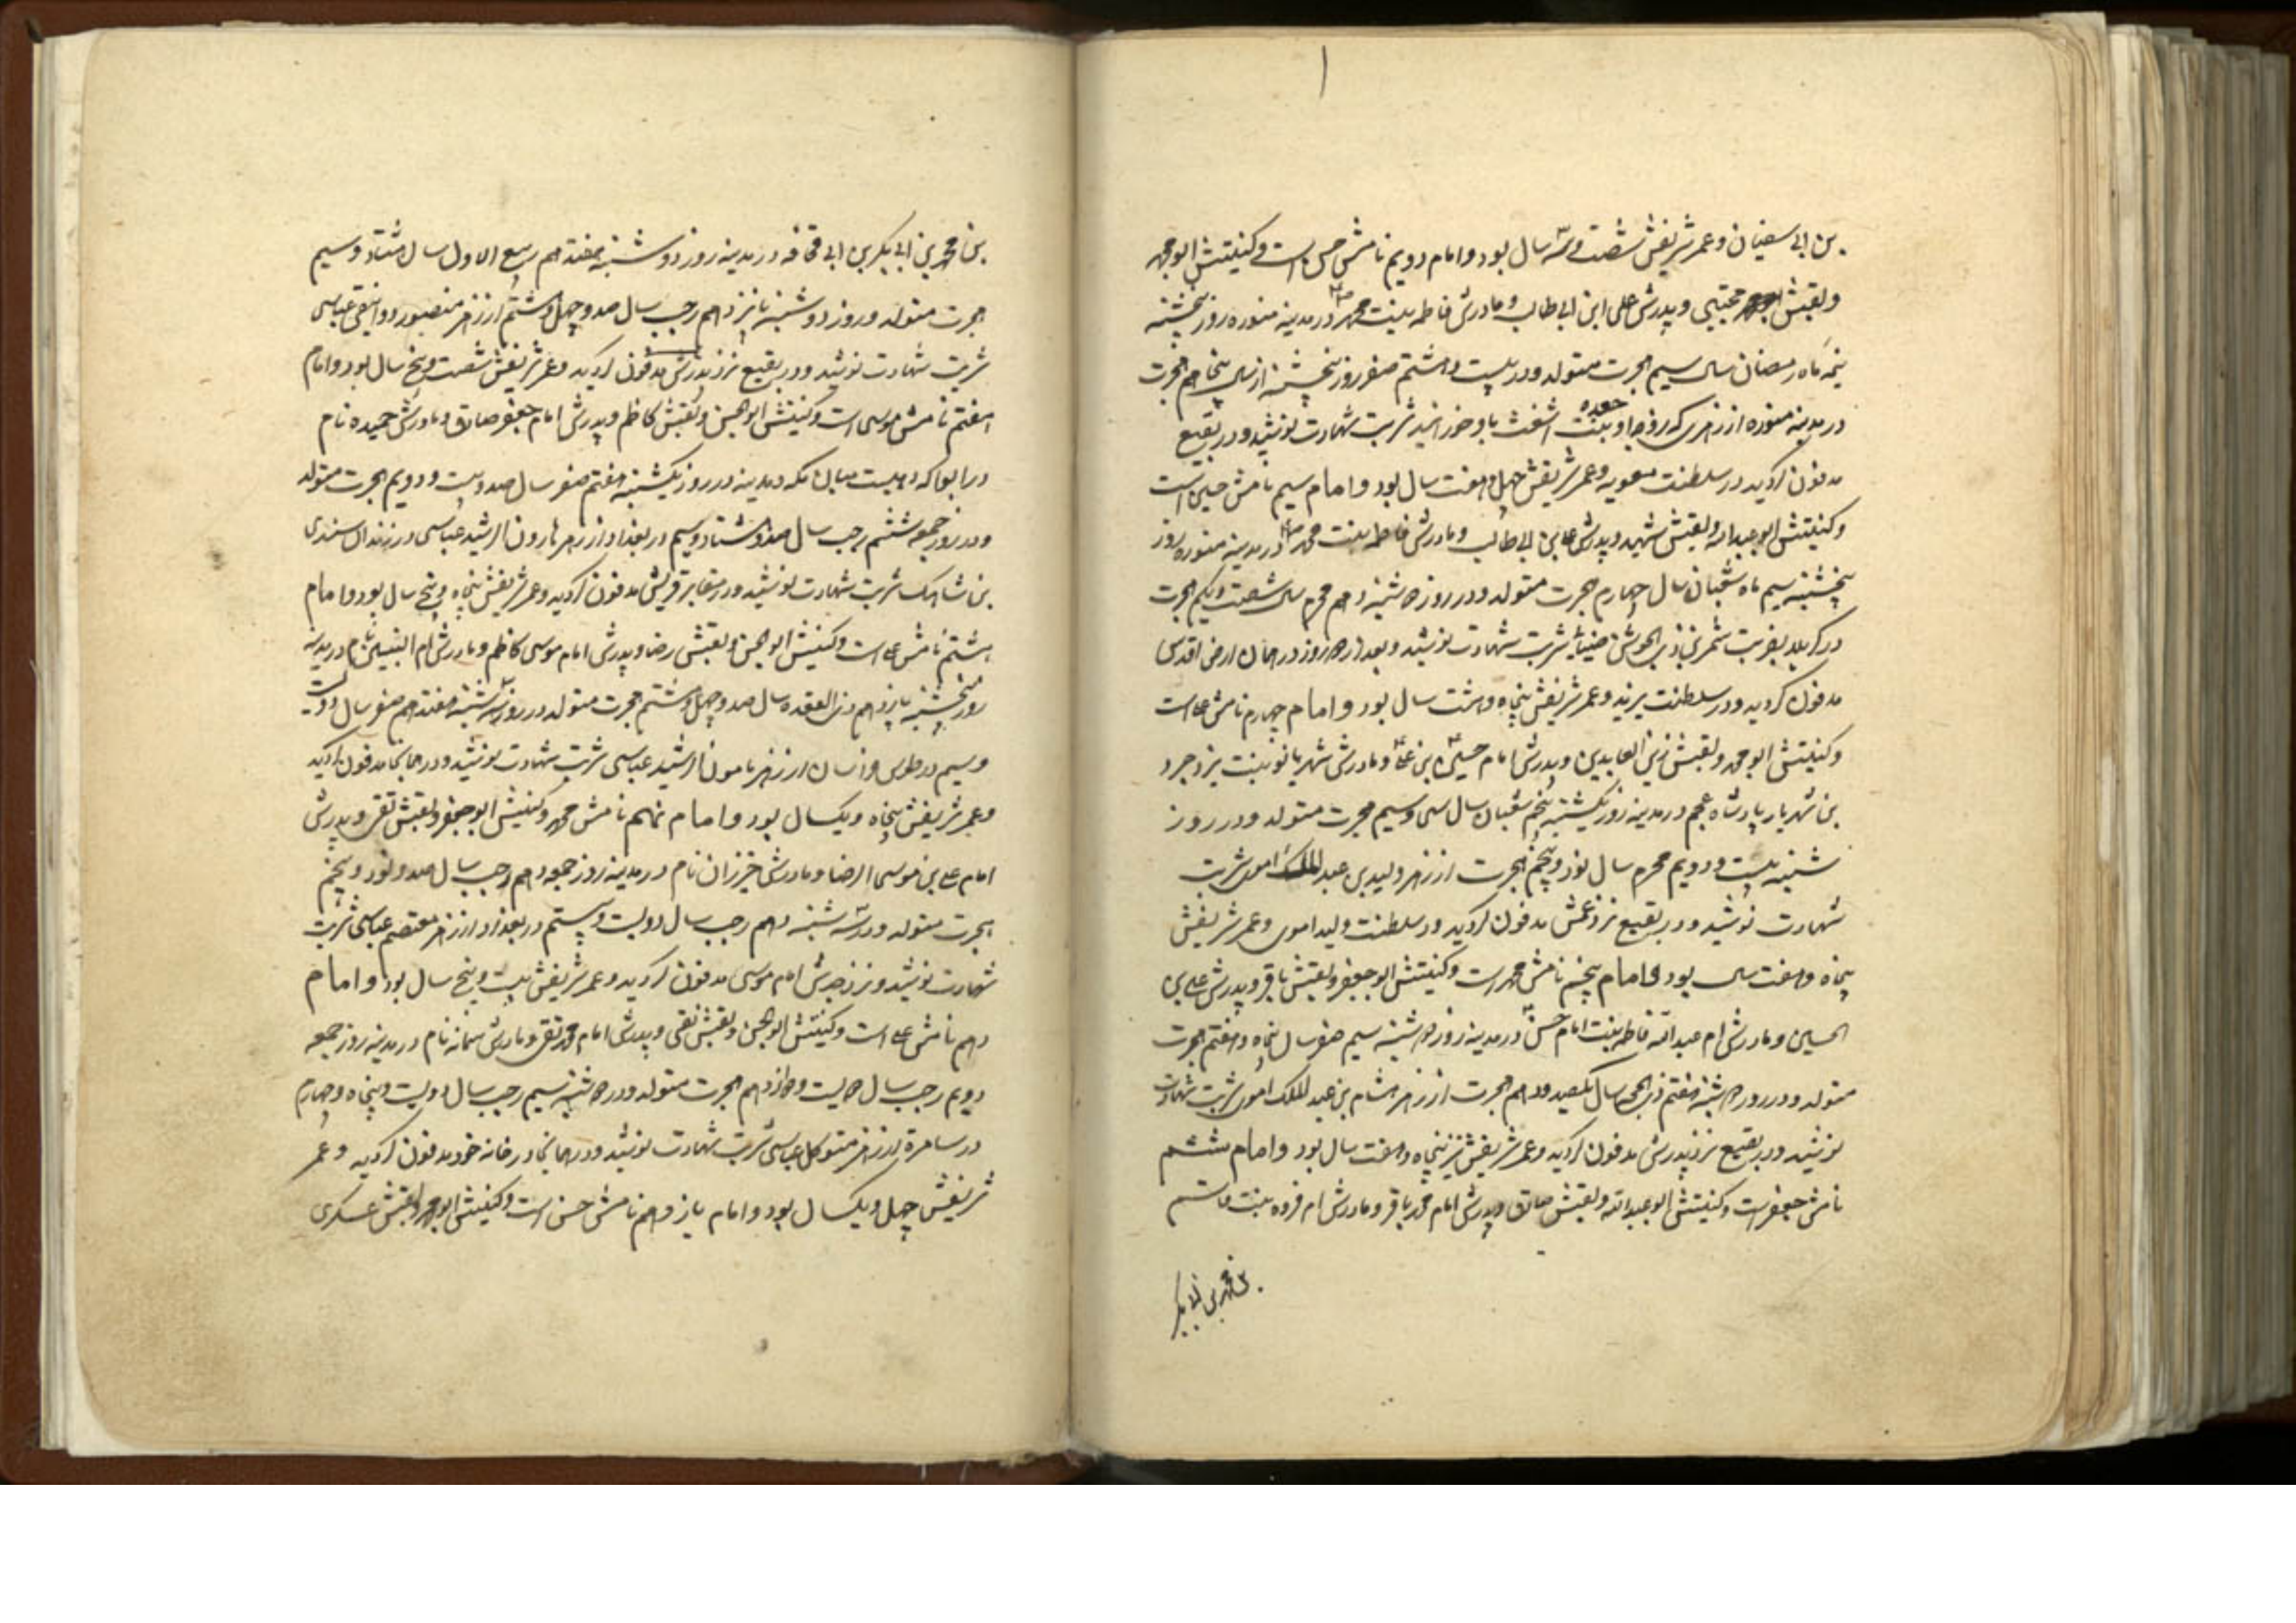 بن ابی سفیان و عمر شریفش شصت و سه سال بود و امام دویم نامش حسن است و کنیتش ابو محمد
ولقبش مجتبی و پدرش علی ابن ابی طالب و مادرش فاطمه بنت محمد ص در مدینه منوره روز پنجشنبه
نیمه ماه رمضان سال سیم هجرت متولد و در بیست و هشتم صفر روز پنجشنبه از سال پنجاهم هجرت
در مدینه منوره از زهری که زوجه او جعده بنت اشعث باو خورانید شربت شهادت نوشید و در بقیع
مدفون گردید در سلطنت معویه و عمر شریفش چهل و هفت سال بود و امام سیم نامش حسین است
و کنیتش ابو عبدالله ولقبش شهید و پدرش علی بن ابی طالب و مادرش فاطمه بنت محمد ص در مدینه منوره روز
پنجشنبه سیم ماه شعبان سال چهارم هجرت متولد و در روز دوشنبه دهم محرم سال شصت و یکم هجرت
در کربلا بضربت شمر بن ذی الجوشن ضبابی شربت شهادت نوشید و بعد از سه روز در همان ارض اقدس
مدفون گردید و در سلطنت یزید و عمر شریفش پنجاه و هشت سال بود و امام چهارم نامش علی است
و کنیتش ابو محمد ولقبش زین العابدین و پدرش امام حسین بن علی و مادرش شهربانو بنت یزدجرد
بن شهریار پادشاه عجم در مدینه روز یکشنبه پنجم شعبان سال سی و سیم هجرت متولد و در روز
شنبه بیست و دویم محرم سال نود و پنجم هجرت از زهر ولید بن عبدالملک اموی شربت
شهادت نوشید و در بقیع نزد عمش مدفون گردید در سلطنت ولید اموی و عمر شریفش
پنجاه و هفت سال بود و امام پنجم نامش محمد است و کنیتش ابو جعفر ولقبش باقر و پدرش علی بن
الحسین و مادرش ام عبدالله فاطمه بنت امام حسن در مدینه روز دوشنبه سیم صفر سال پنجاه و هفتم هجرت
متولد و در روز دوشنبه هفتم ذی الحجه سال یکصد و دهم هجرت از زهر هشام بن عبدالملک اموی شربت شهادت
نوشید و در بقیع نزد پدرش مدفون گردید و عمر شریفش نیز پنجاه و هفت سال بود و امام ششم
نامش جعفر است و کنیتش ابو عبدالله ولقبش صادق و پدرش امام محمد باقر و مادرش ام فروه بنت قاسم
بن محمد بن ابی بکر
بن محمد بن ابی بکر بن ابی قحافه در مدینه روز دوشنبه هفتدهم ربیع الاول سال هشتاد و سیم
هجرت متولد و روز دوشنبه پانزدهم رجب سال صد و چهل و هشتم از زهر منصور دوانیقی عباسی
شربت شهادت نوشید و در بقیع نزد پدرش مدفون گردید و عمر شریفش شصت و پنج سال بود و امام
هفتم نامش موسی است و کنیتش ابو الحسن ولقبش کاظم و پدرش امام جعفر صادق و مادرش حمیده نام
در ابوا که دهیست میان مکه و مدینه در روز یکشنبه هفتم صفر سال صد و بیست و دویم هجرت متولد
و در روز جمعه ششم رجب سال صد و هشتاد و سیم در بغداد از زهر هارون الرشید عباسی در زندان سندی
بن شاهک شربت شهادت نوشید و در مقابر قریش مدفون گردید و عمر شریفش پنجاه و پنج سال بود و امام
هشتم نامش علی است و کنیتش ابو الحسن ولقبش رضا و پدرش امام موسی کاظم و مادرش ام البنین نام در مدینه
روز پنجشنبه یازدهم ذی القعده سال صد و چهل و هشتم هجرت متولد در روز سه شنبه هفتدهم صفر سال دویست
و سیم در طوس خراسان از زهر مامون الرشید عباسی شربت شهادت نوشید و در همانجا مدفون گردید
و عمر شریفش پنجاه و یکسال بود و امام نهم نامش محمد و کنیتش ابو جعفر ولقبش تقی و پدرش
امام علی بن موسی الرضا و مادرش خیزران نام در مدینه روز جمعه دهم رجب سال صد و نود و پنجم
هجرت متولد و در سه شنبه دهم رجب سال دویست و بیستم در بغداد از زهر معتصم عباسی شربت
شهادت نوشید و نزد جدش امام موسی مدفون گردید و عمر شریفش بیست و پنج سال بود و امام
دهم نامش علی است و کنیتش ابو الحسن ولقبش نقی و پدرش امام محمد تقی و مادرش سمانه نام در مدینه روز جمعه
دویم رجب سال دویست و دوازدهم هجرت متولد و در دوشنبه سیم رجب سال دویست و پنجاه و چهارم
در سامره از زهر متوکل عباسی شربت شهادت نوشید و در همانجا در خانه خود مدفون گردید و عمر
شریفش چهل و یکسال بود و امام یازدهم نامش حسن است و کنیتش ابو محمد ولقبش عسکری